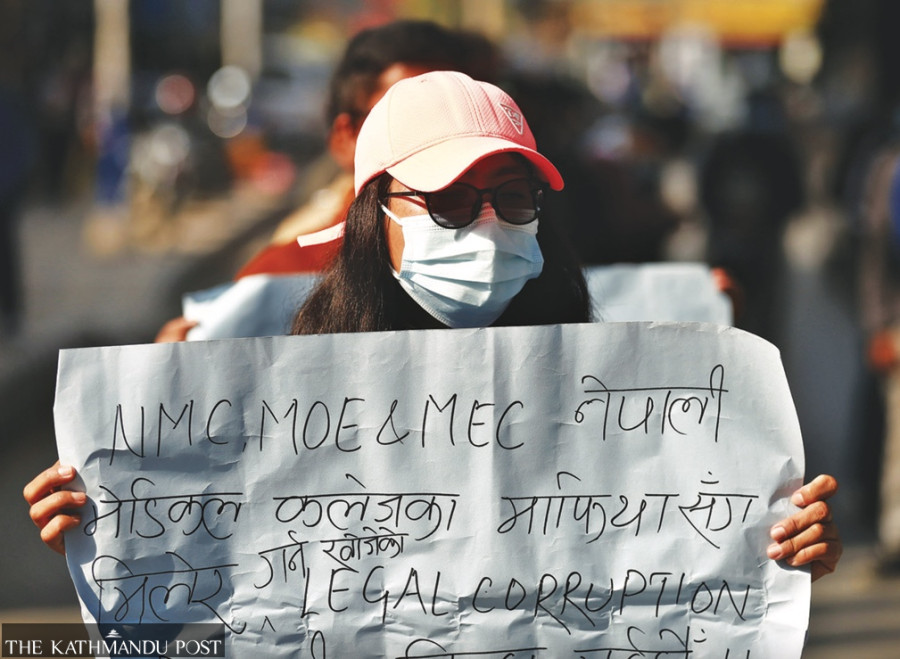 NMC, MOE & MEC नेपाली
मेडिकल कलेजका माफिया संग
गर्न खोजेको
मिलेर LEGAL CORRUPTION
THE KATHMANDU POST